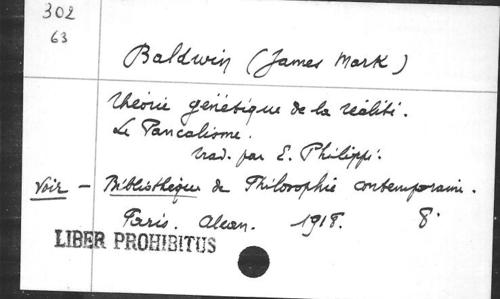 302
63
Baldwin (James Mark)
Théorie génétique de la réalité.
Le Pancalisme.
trad. par E. Philippi.
Voir - Bibliothèque de Philosophie contemporaine.
Paris. Alcan. 1918. 8°
LIBER PROHIBITUS